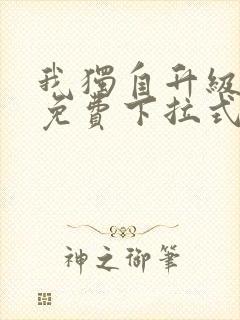 我獨自升級
免費下拉式
神之御筆